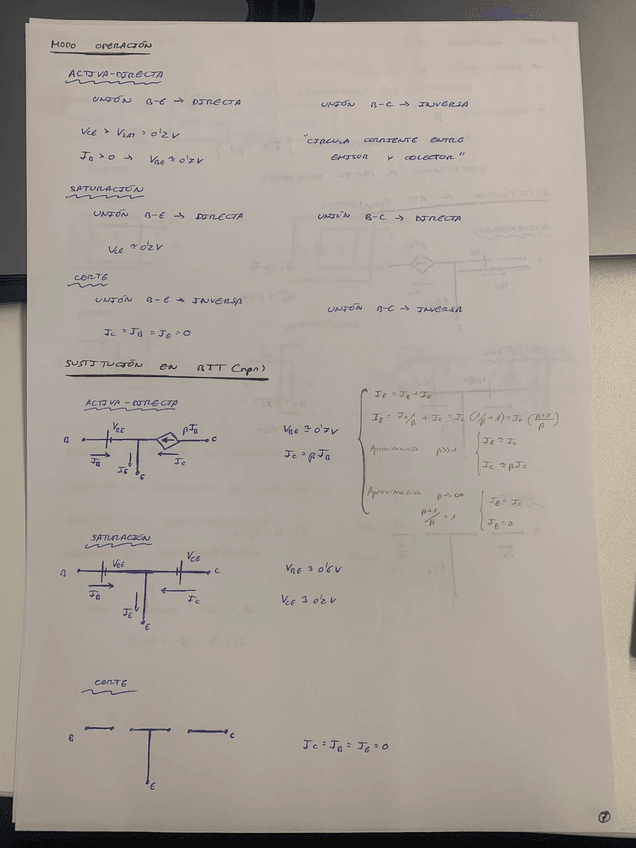 MODO OPERACIÓN
ACTIVA-DIRECTA
UNIÓN B-E → DIRECTA
UNIÓN B-C → INVERSA
VCE > VSAT = 0'2V
IB > 0 → VBE ≈ 0'7V
"CIRCULA CORRIENTE ENTRE
EMISOR Y COLECTOR"
SATURACIÓN
UNIÓN B-E → DIRECTA
UNIÓN B-C → DIRECTA
VCE ≈ 0'2V
CORTE
UNIÓN B-E → INVERSA
UNIÓN B-C → INVERSA
IC = IB = IE = 0
SUSTITUCIÓN EN BJT (npn)
ACTIVA-DIRECTA
B VBE βIB C
IB IE IC
E
VBE ≈ 0'7V
IC = βIB
IE = IB + IC
IE = IC/β + IC = IC (1/β + 1) = IC (β+1/β)
Aproximación β>>1
IE ≈ IC
IC ≈ βIC
Aproximación β→∞
β+1/β = 1
IE = IC
IB = 0
SATURACIÓN
B VBE VCE C
IB IE IC
E
VBE ≈ 0'6V
VCE ≈ 0'2V
CORTE
B C
E
IC = IB = IE = 0
7